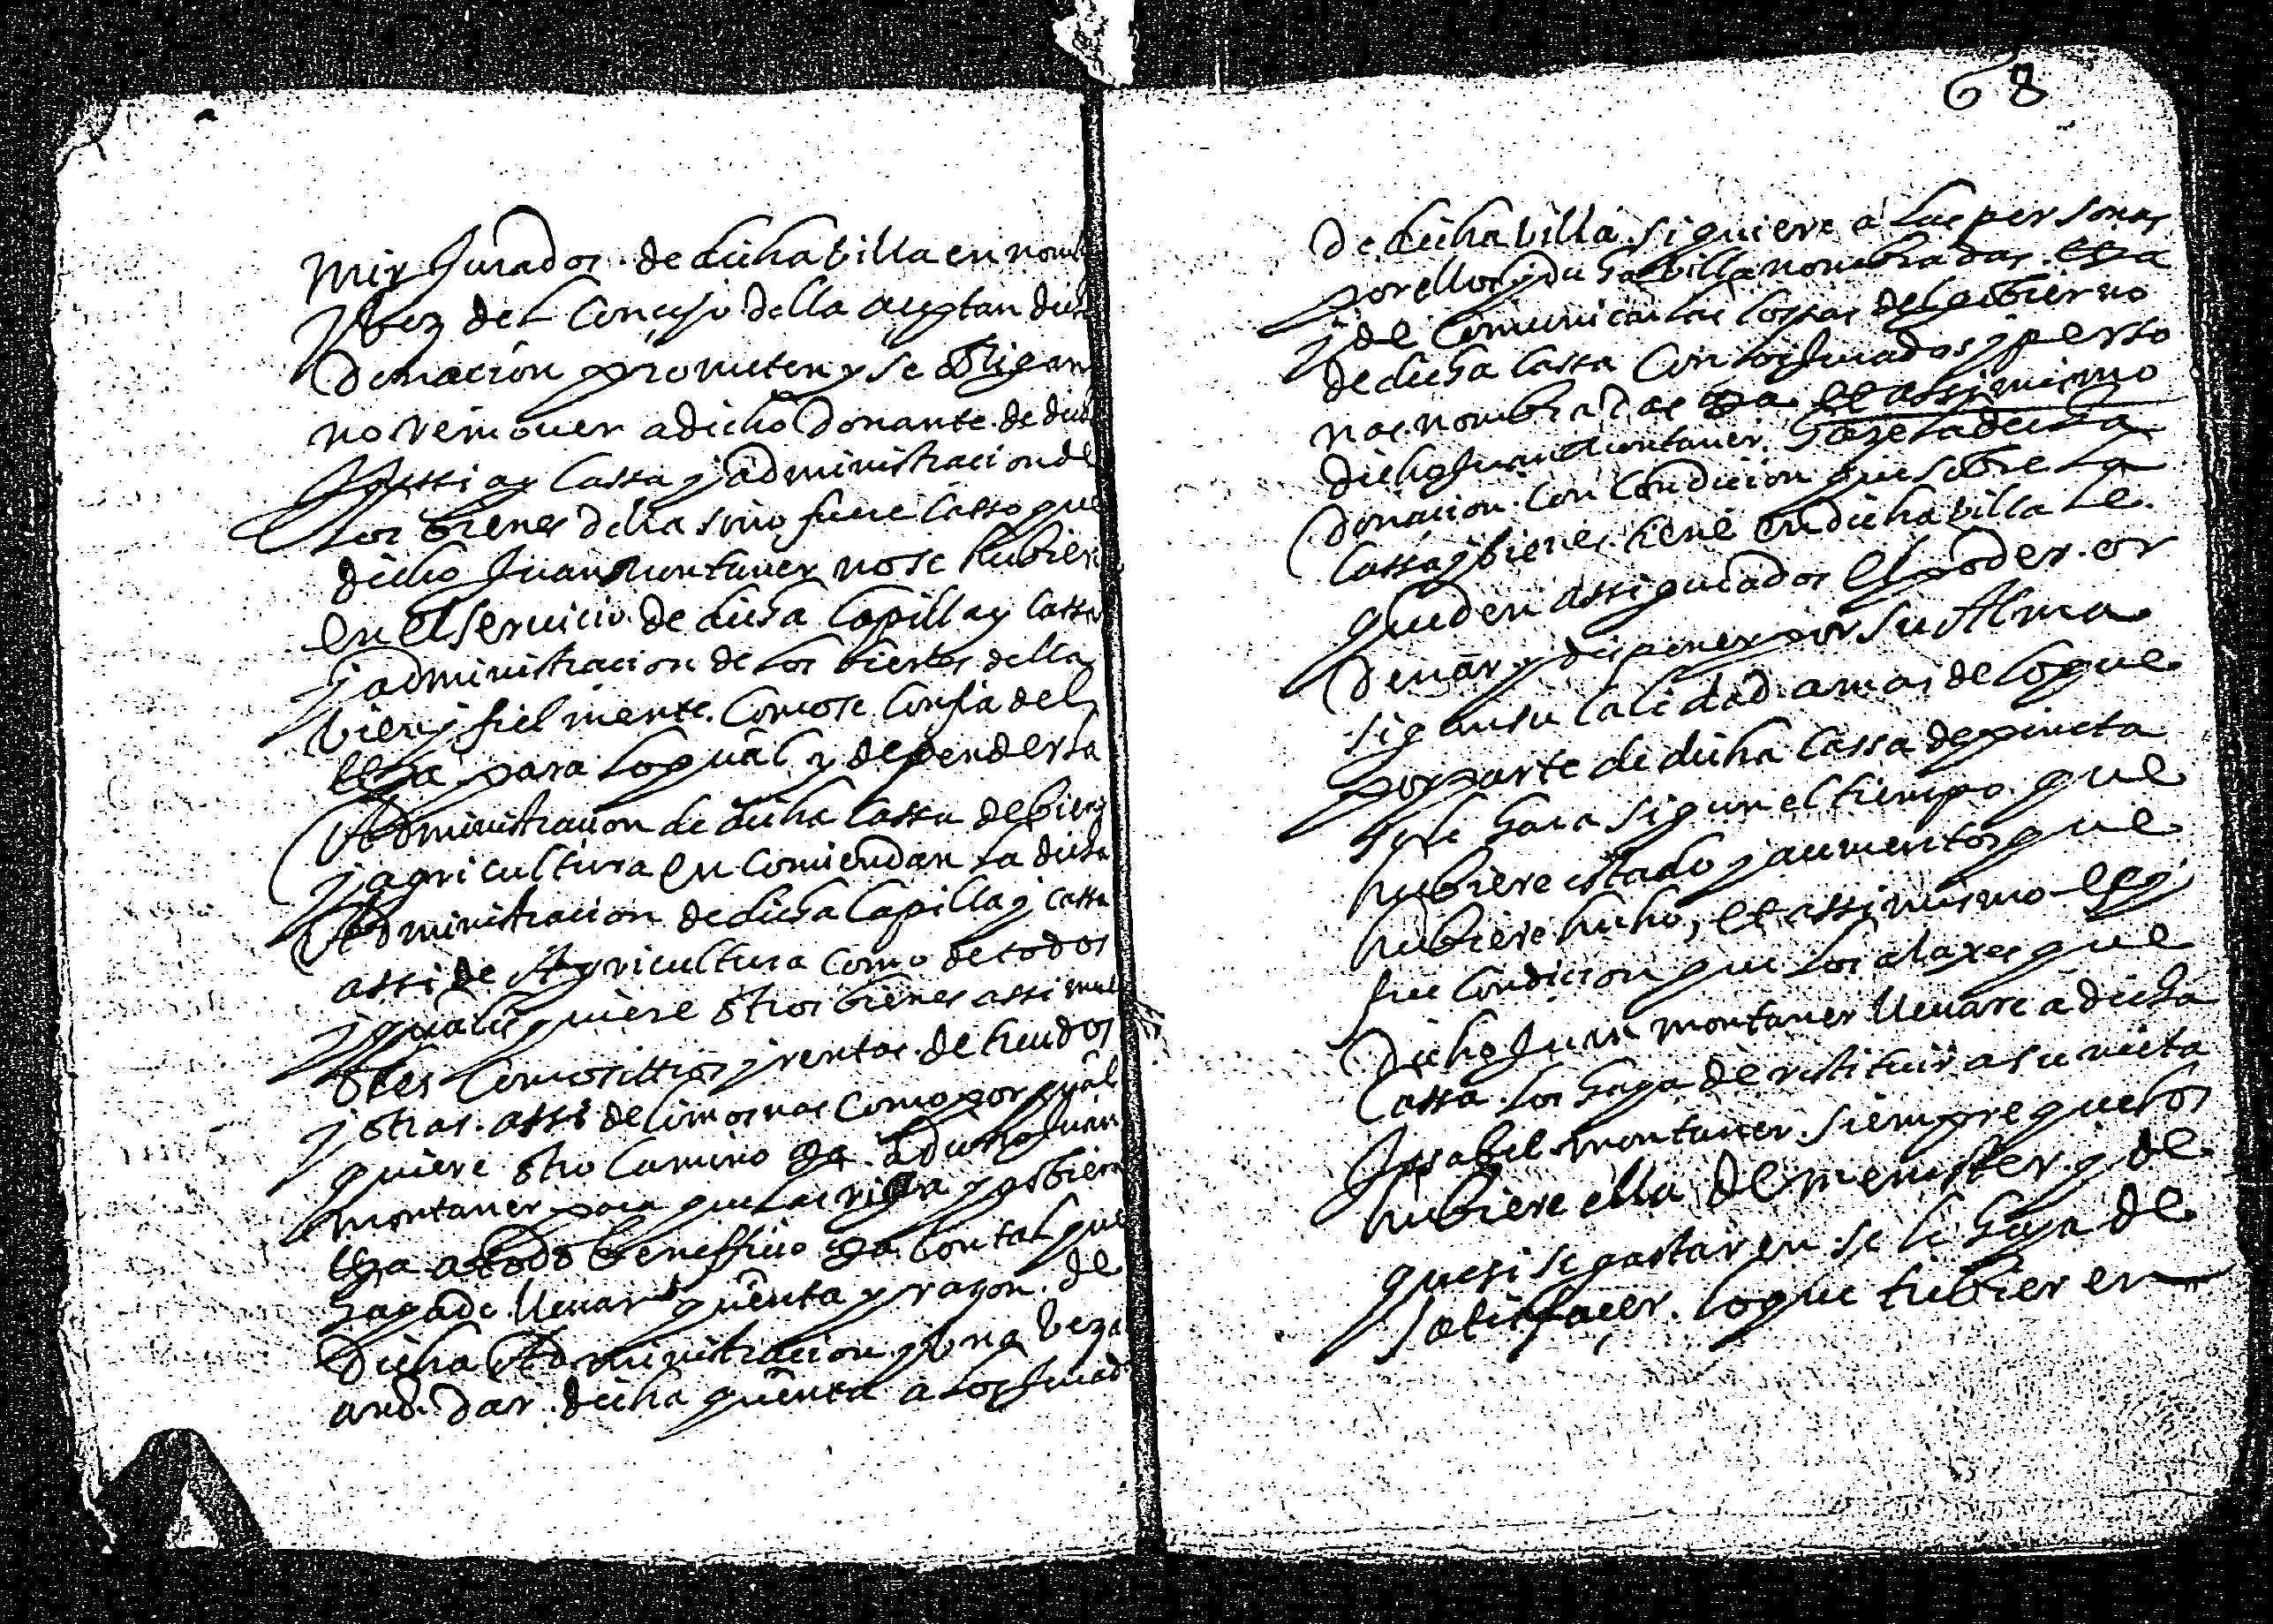 Mir Jurados de dicha billa en nomb
y boz del Concejo della aceptan dicha
Donacion prometen y se obligan
no remouer a dicho Donante de dicha
Iglessia y Cassa y administracion de
los bienes della sino fuere Casso que
dicho Juan Montaner no se hubiere
en el seruicio de dicha Capilla y Cassa
y administracion de los bienes della
bien y fielmente Como se Confia del
etza para lo qual y depender la
Administracion de dicha Cassa de bienes
y agricultura en Comiendan la dicha
Administracion de dicha Capilla y cassa
assi de Agricultura Como de todos
y qualesquiere otros bienes assi mue
bles Como sittios y rentas de treudos
y otras assi de limosnas Como por qual
quiere otro Camino etza a dicho Juan
montaner para que las rija y gobierne
etza a todo beneffiçio etza Con tal que
haga de lleuar quenta y razon de
Dicha Administracion y una bez al
año dar dicha quenta a los Jurados
68
De dicha billa si quiere a las personas
por ellos y dicha billa nombradas etza
y de Comunicar las Cossas del gobierno
de dicha Cassa Con los Jurados y perso
nas nombradas etza et assimismo
dicho Juan Montaner haze la dicha
Donacion Con Condicion que sobre la
Cassa y bienes tiene en dicha billa le
queden assigurados el poder or
denar y disponer por su Alma
sigun su Calidad a mas de lo que
por parte de dicha Cassa de pineta
se le hara sigun el tiempo que
hubiere estado y aumentos que
hubiere hecho, et assimismo es
fue Condicion que los alaxes que
Dicho Juan montaner lleuare a dicha
Cassa los haya de restituir a su nieta
Issabel montaner siempre que los
hubiere ella de menester y de
que si se gastaren se le haya de
satisfaçer lo que tubieren